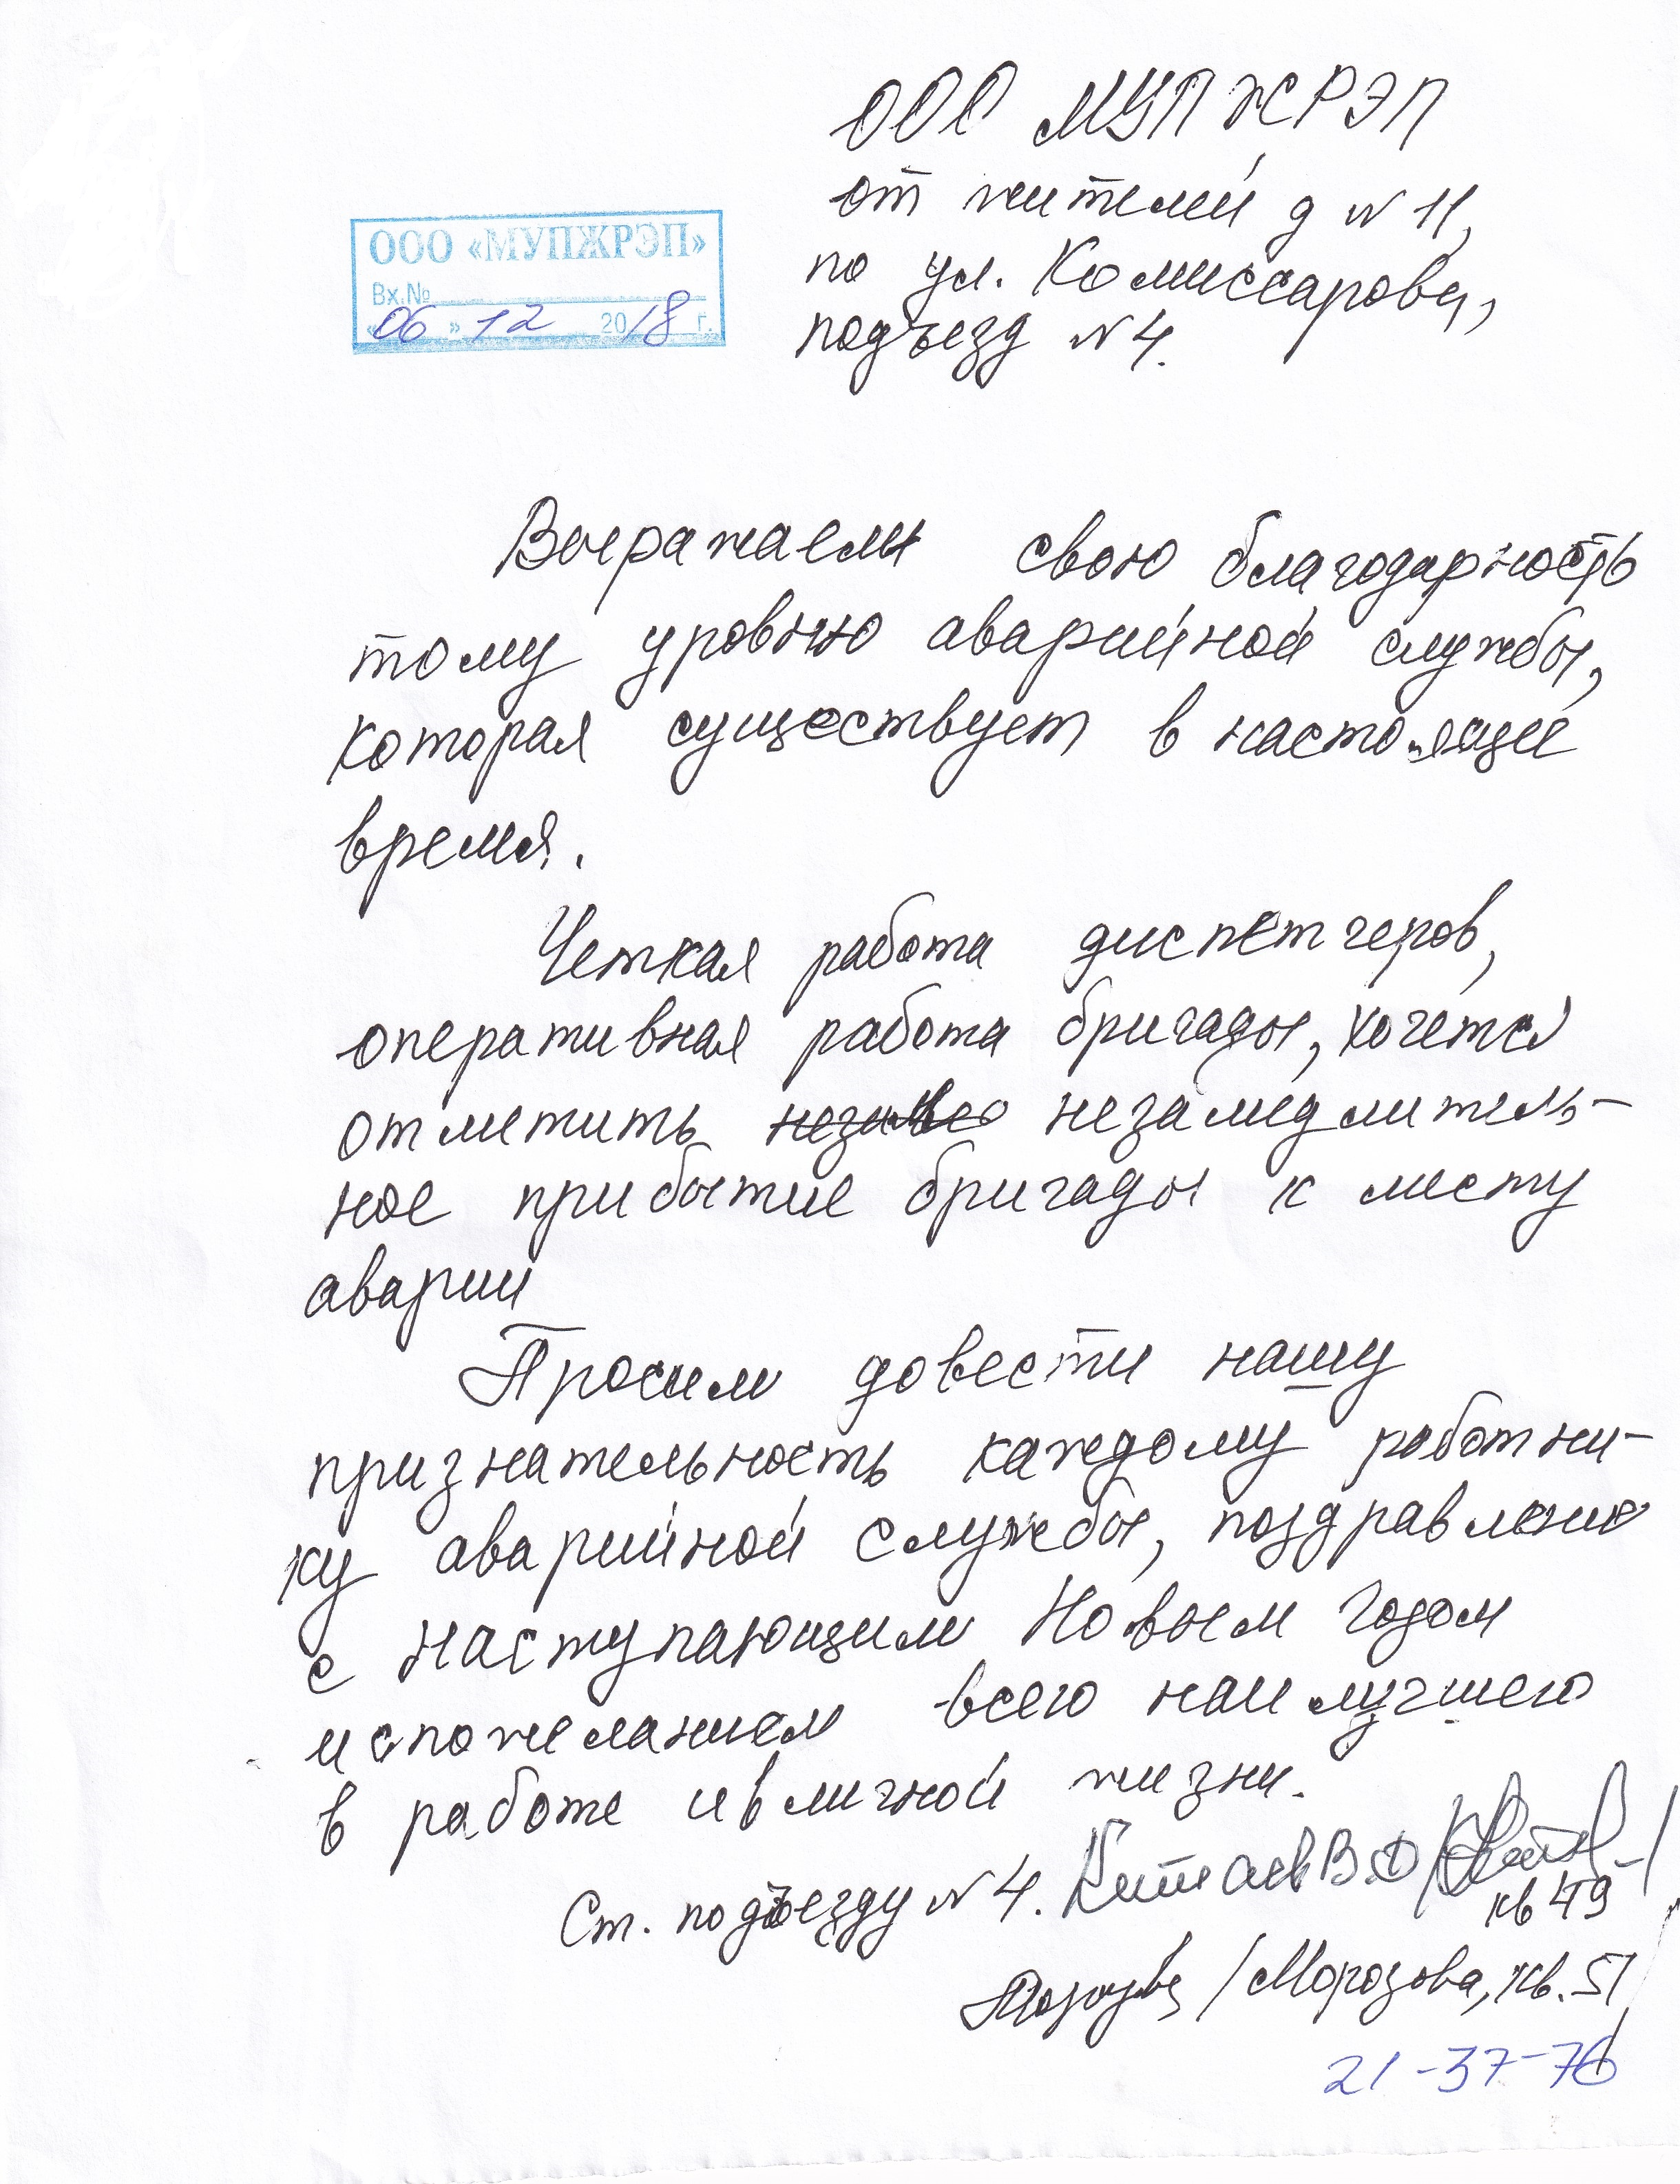 ООО МУПЖРЭП
от жителей д N 11,
по ул. Комиссарова,
подъезд N 4.
ООО «МУПЖРЭП»
Вх.№
«06» 12 2018 г.
Выражаем свою благодарность
тому уровню аварийной службы,
которая существует в настоящее
время.
Четкая работа диспетчеров,
оперативная работа бригады, хочется
отметить незамедлитель-
ное прибытие бригады к месту
аварии
Просим довести нашу
признательность каждому работни-
ку аварийной службы, поздравление
с наступающим Новым Годом
и с пожеланием всего наилучшего
в работе и в личной жизни.
Ст. подъезду N 4. Китаев В.Ф
кв 49
/Морозова, кв. 51/
21-37-76